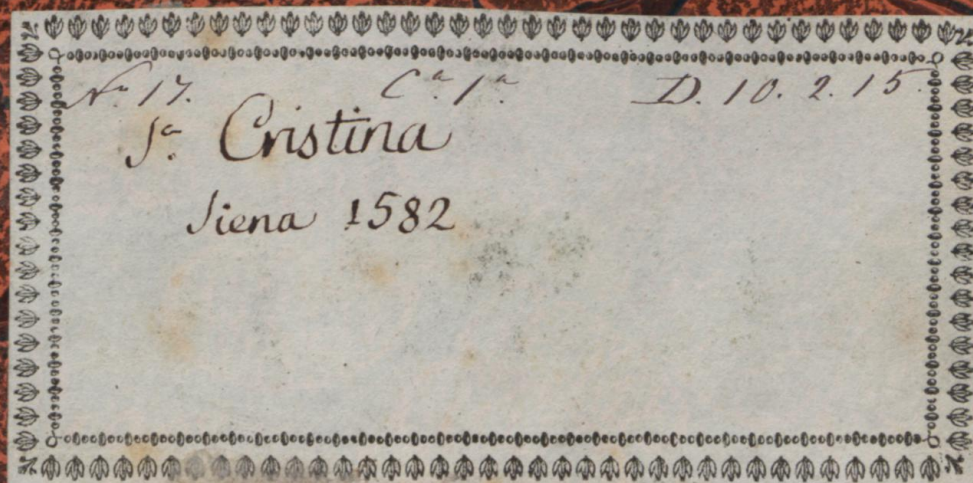 Nº 17. Cª 1ª D. 10. 2. 15.
Sª Cristina
Siena 1582